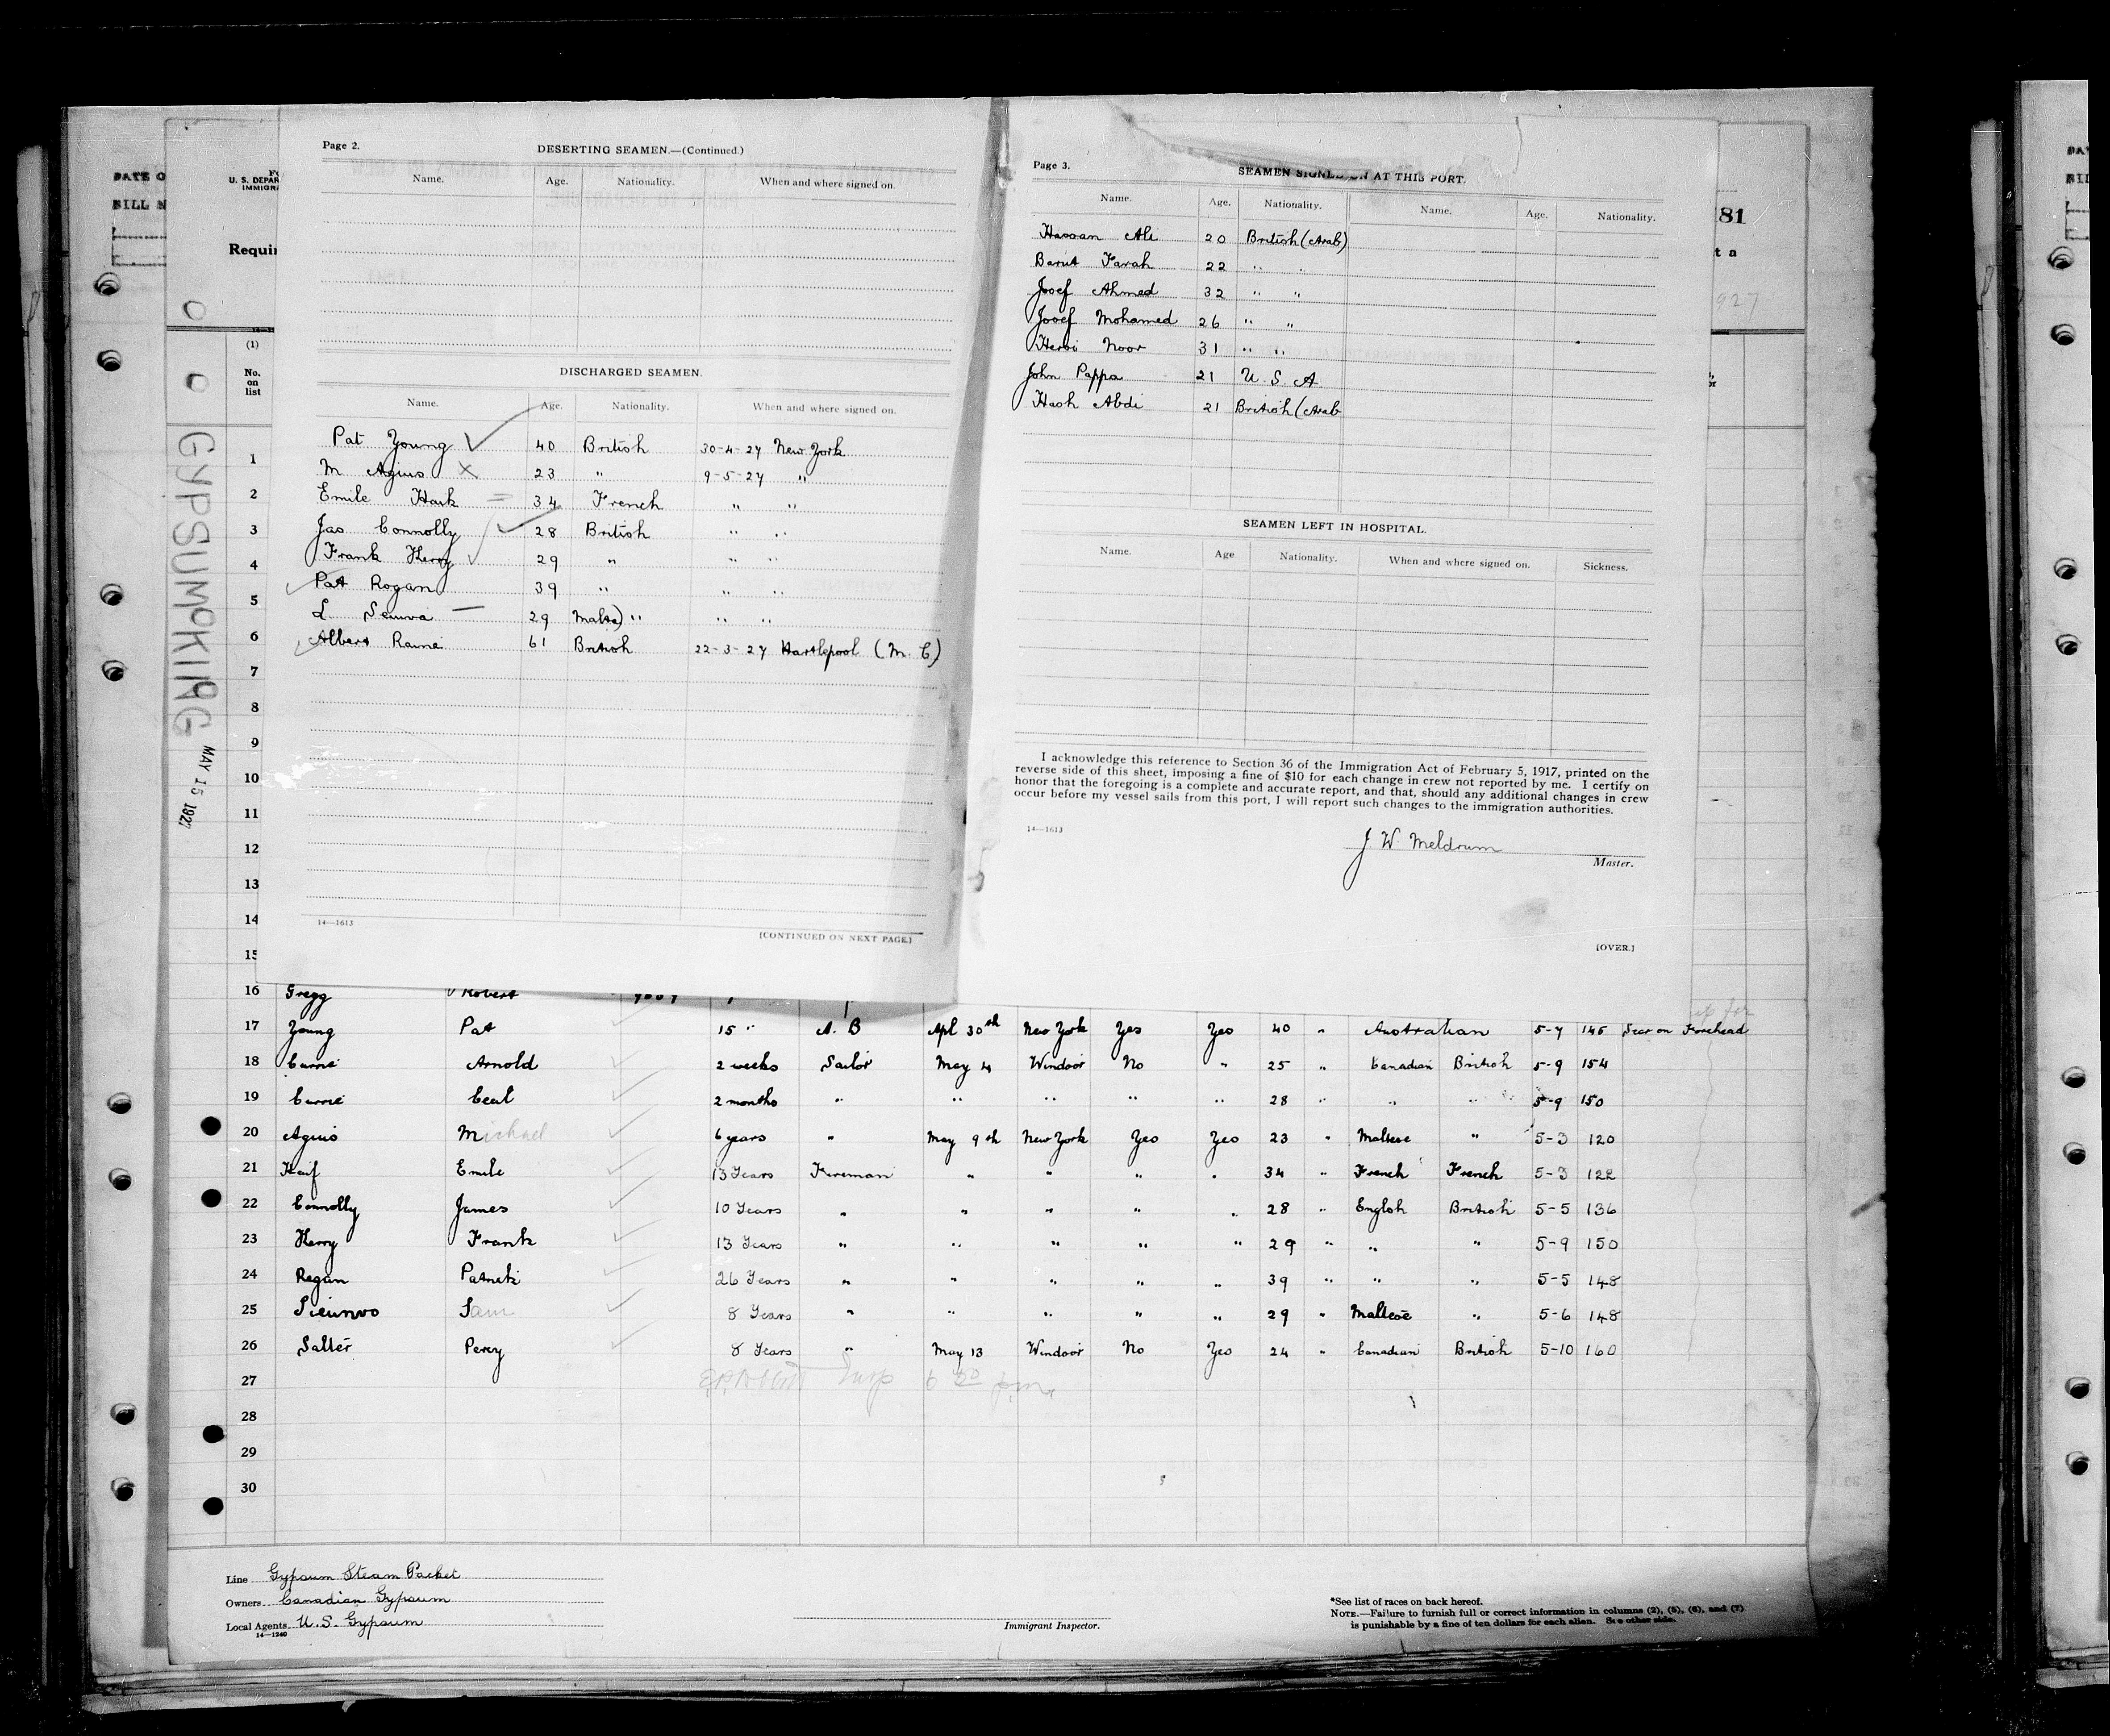 DATE O
BILL N
U. S. DEPAR
IMMIGRA
Requir
(1)
No.
on
list
GYPSUM KING
MAY 15 1927
Page 2.
DESERTING SEAMEN.—(Continued.)
Name. Age. Nationality. When and where signed on.
DISCHARGED SEAMEN.
Name. Age. Nationality. When and where signed on.
Pat Young 40 British 30-4-27 New York
M Agius 23 " 9-5-27 "
Emile Haik 34 French " "
Jas Connolly 28 British " "
Frank Henry 29 " " "
Pat Rogan 39 " " "
L 29 Malta) " " "
Albert Raine 61 British 22-3-27 Hartlepool (M. C)
14—1613
[CONTINUED ON NEXT PAGE.]
Page 3.
SEAMEN SIGNED ON AT THIS PORT.
Name. Age. Nationality. Name. Age. Nationality.
Hassan Ali 20 British (Arab)
Barut Farah 22 " "
Josef Ahmed 32 " "
Josef Mohamed 26 " "
Hersi Noor 31 " "
John Pappa 21 U S A
Hash Abdi 21 British (Arab
SEAMEN LEFT IN HOSPITAL.
Name. Age Nationality. When and where signed on. Sickness.
I acknowledge this reference to Section 36 of the Immigration Act of February 5, 1917, printed on the
reverse side of this sheet, imposing a fine of $10 for each change in crew not reported by me. I certify on
honor that the foregoing is a complete and accurate report, and that, should any additional changes in crew
occur before my vessel sails from this port, I will report such changes to the immigration authorities.
14—1613
J W Meldrum
Master.
[OVER.]
81
t a
927
1
2
3
4
5
6
7
8
9
10
11
12
13
14
15
16 Gregg Robert
17 Young Pat 15 " A. B Apl 30th New York Yes Yes 40 " Australian 5-7 145 Scar on Forehead
18 Currie Arnold 2 weeks Sailor May 4 Windsor No " 25 " Canadian British 5-9 154
19 Currie Cecil 2 months " " " " " 28 " " " 5-9 150
20 Agius Michael 6 years " May 9th New York Yes Yes 23 " Maltese " 5-3 120
21 Haif Emile 13 Years Fireman " " " " 34 " French French 5-3 122
22 Connolly James 10 Years " " " " " 28 " English British 5-5 136
23 Henry Frank 13 Years " " " " " 29 " " " 5-9 150
24 Regan Patrick 26 Years " " " " " 39 " " " 5-5 148
25 Sam 8 Years " " " " " 29 " Maltese " 5-6 148
26 Salter Percy 8 Years " May 13 Windsor No Yes 24 " Canadian British 5-10 160
27 Insp 6 20 pm
28
29
30
Line Gypsum Steam Packet
Owners Canadian Gypsum
Local Agents U.S. Gypsum
14—1240
Immigrant Inspector.
*See list of races on back hereof.
NOTE.—Failure to furnish full or correct information in columns (2), (5), (6), and (7)
is punishable by a fine of ten dollars for each alien. See other side.